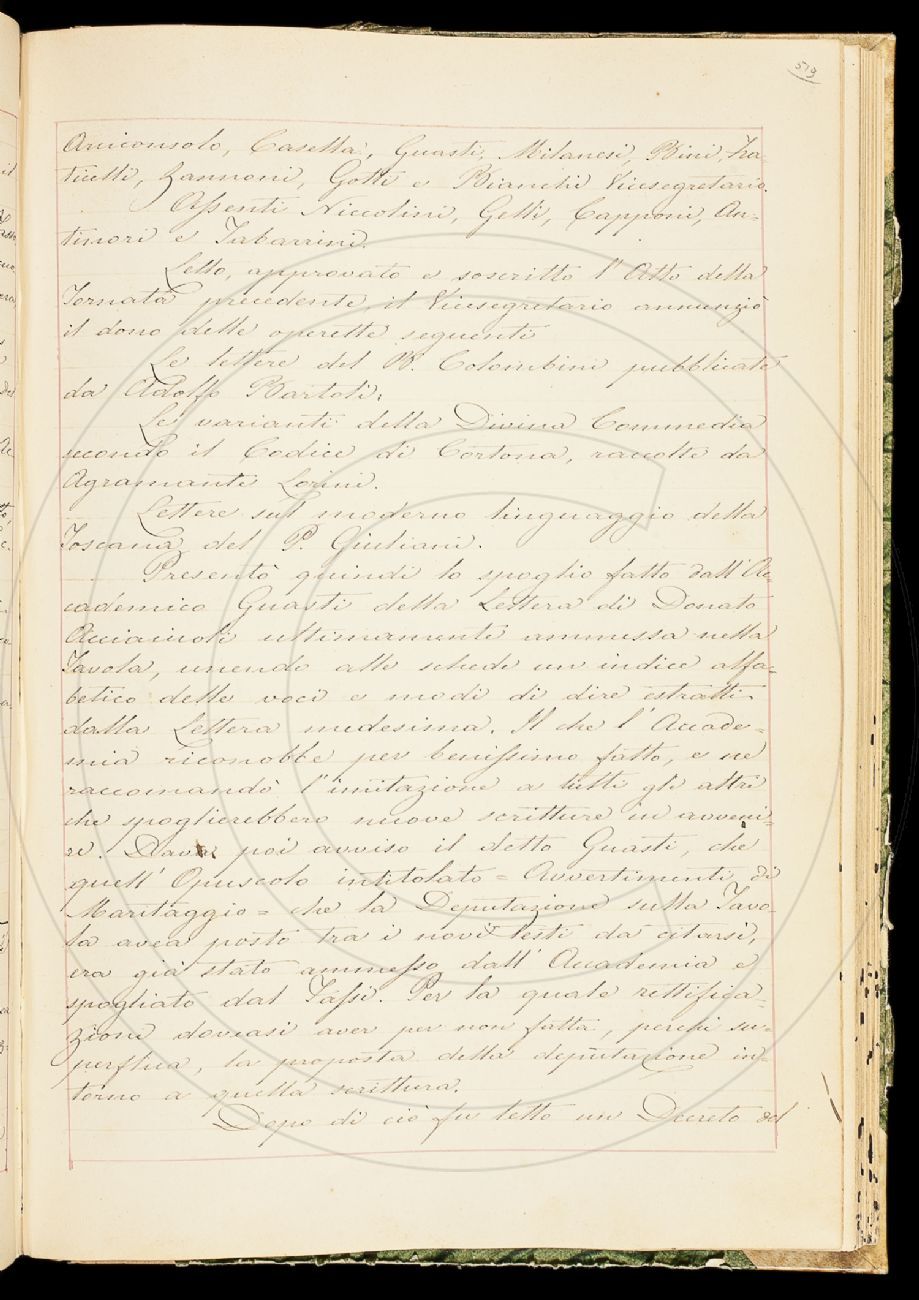 513
Arciconsolo, Casella, Guasti, Milanesi, Bini, Fra-
ticelli, Zannoni, Gotti e Bianchi Vicesegretario.
Assenti Niccolini, Gelli, Capponi, An-
tinori e Tabarrini.
Letto, approvato e soscritto l'Atto della
Tornata precedente, il Vicesegretario annunziò
il dono delle operette seguenti
Le lettere del B. Colombini pubblicate
da Adolfo Bartoli;
Le varianti della Divina Commedia
secondo il Codice di Cortona, raccolte da
Agramante Lorini.
Lettere sul moderno linguaggio della
Toscana del P. Giuliani.
Presentò quindi lo spoglio fatto dall'Ac-
cademico Guasti della Lettera di Donato
Acciaiuoli ultimamente ammessa nella
Tavola, unendo alle schede un indice alfa-
betico delle voci e modi di dire estratti
dalla Lettera medesima. Il che l'Accade-
mia riconobbe per benissimo fatto, e ne
raccomandò l'imitazione a tutti gli altri
che spoglierebbero nuove scritture in avveni-
re. Dava poi avviso il detto Guasti, che
quell'Opuscolo intitolato = Avvertimenti di
Maritaggio = che la Deputazione sulla Tavo-
la avea posto tra i novi testi da citarsi,
era già stato ammesso dall'Accademia e
spogliato dal Fassi. Per la quale rettifica-
zione doveasi aver per non fatta, perchè su-
perflua, la proposta della deputazione in-
torno a quella scrittura.
Dopo di ciò fu letto un Decreto del